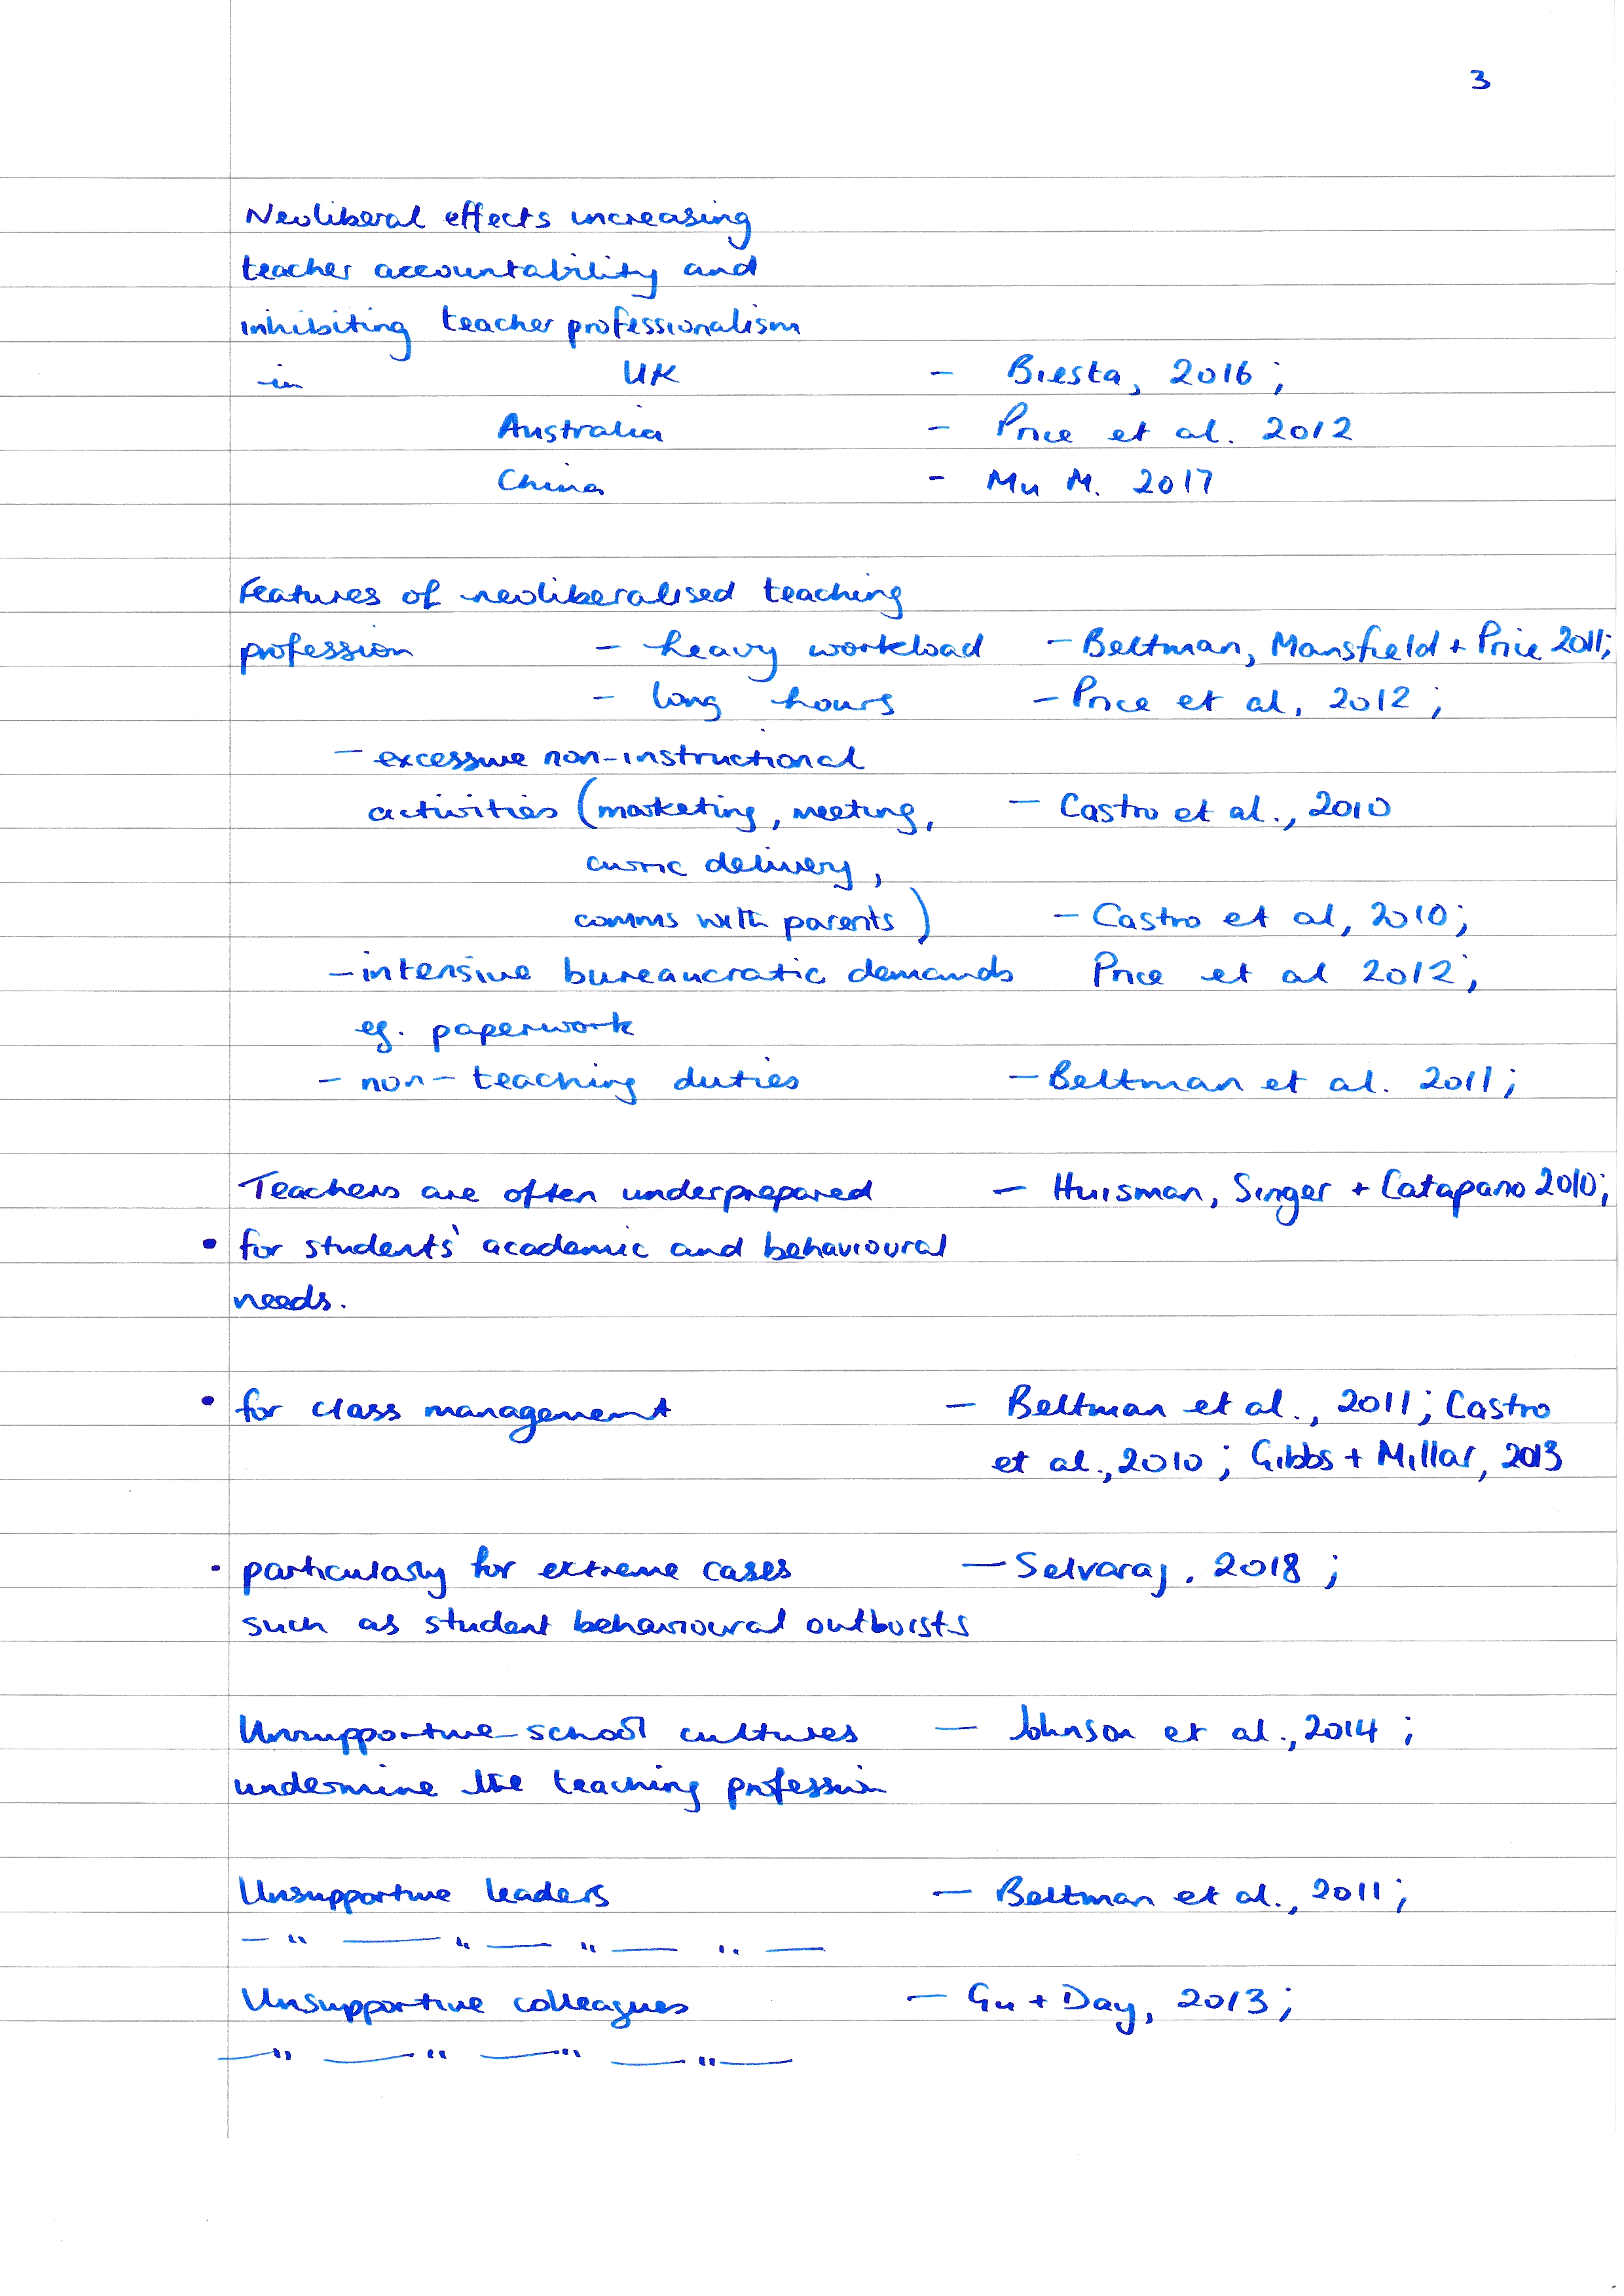 3
Neoliberal effects increasing
teacher accountability and
inhibiting teacher professionalism
in UK - Biesta, 2016;
Australia - Price et al. 2012
China - Mu M. 2017
Features of neoliberalised teaching
profession - heavy workload - Beltman, Mansfield + Price 2011;
- long hours - Price et al, 2012;
- excessive non-instructional
activities (marketing, meeting, - Castro et al., 2010
curric delivery,
comms with parents) - Castro et al, 2010;
- intensive bureaucratic demands Price et al 2012;
eg. paperwork
- non-teaching duties - Beltman et al. 2011;
Teachers are often underprepared - Huisman, Singer + Catapano 2010;
• for students' academic and behavioural
needs.
• for class management - Beltman et al., 2011; Castro
et al., 2010; Gibbs + Millar, 2013
• particularly for extreme cases - Selvaraj, 2018;
such as student behavioural outbursts
Unsupportive school cultures - Johnson et al., 2014;
undermine the teaching profession
Unsupportive leaders - Beltman et al., 2011;
— " — " — " — " —
Unsupportive colleagues - Gu + Day, 2013;
— " — " — " — " —